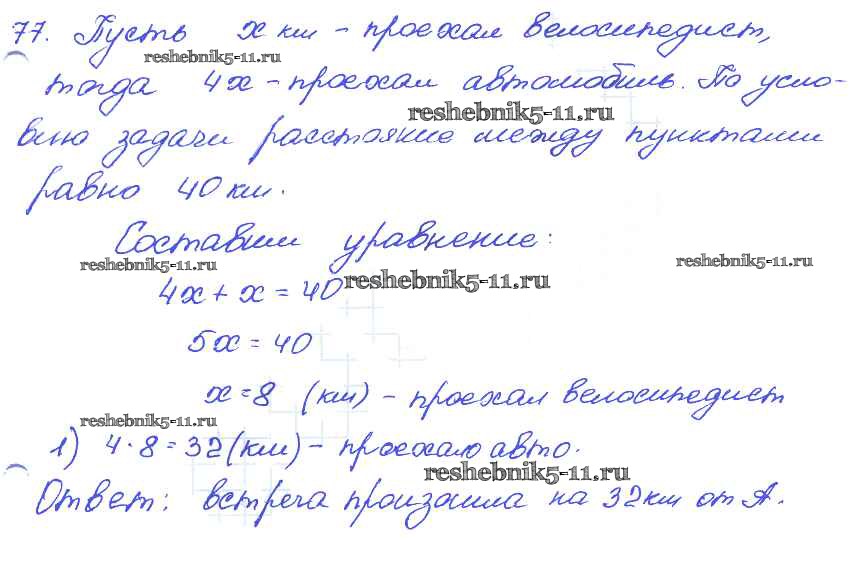 77. Пусть x км - проехал велосипедист,
reshebnik5-11.ru
тогда 4x - проехал автомобиль. По усло-
reshebnik5-11.ru
вию задачи расстояние между пунктами
равно 40 км.
Составим уравнение:
reshebnik5-11.ru
reshebnik5-11.ru
4x + x = 40
reshebnik5-11.ru
5x = 40
x = 8 (км) - проехал велосипедист
reshebnik5-11.ru
1) 4 · 8 = 32 (км) - проехало авто.
reshebnik5-11.ru
Ответ: встреча произошла на 32 км от А.